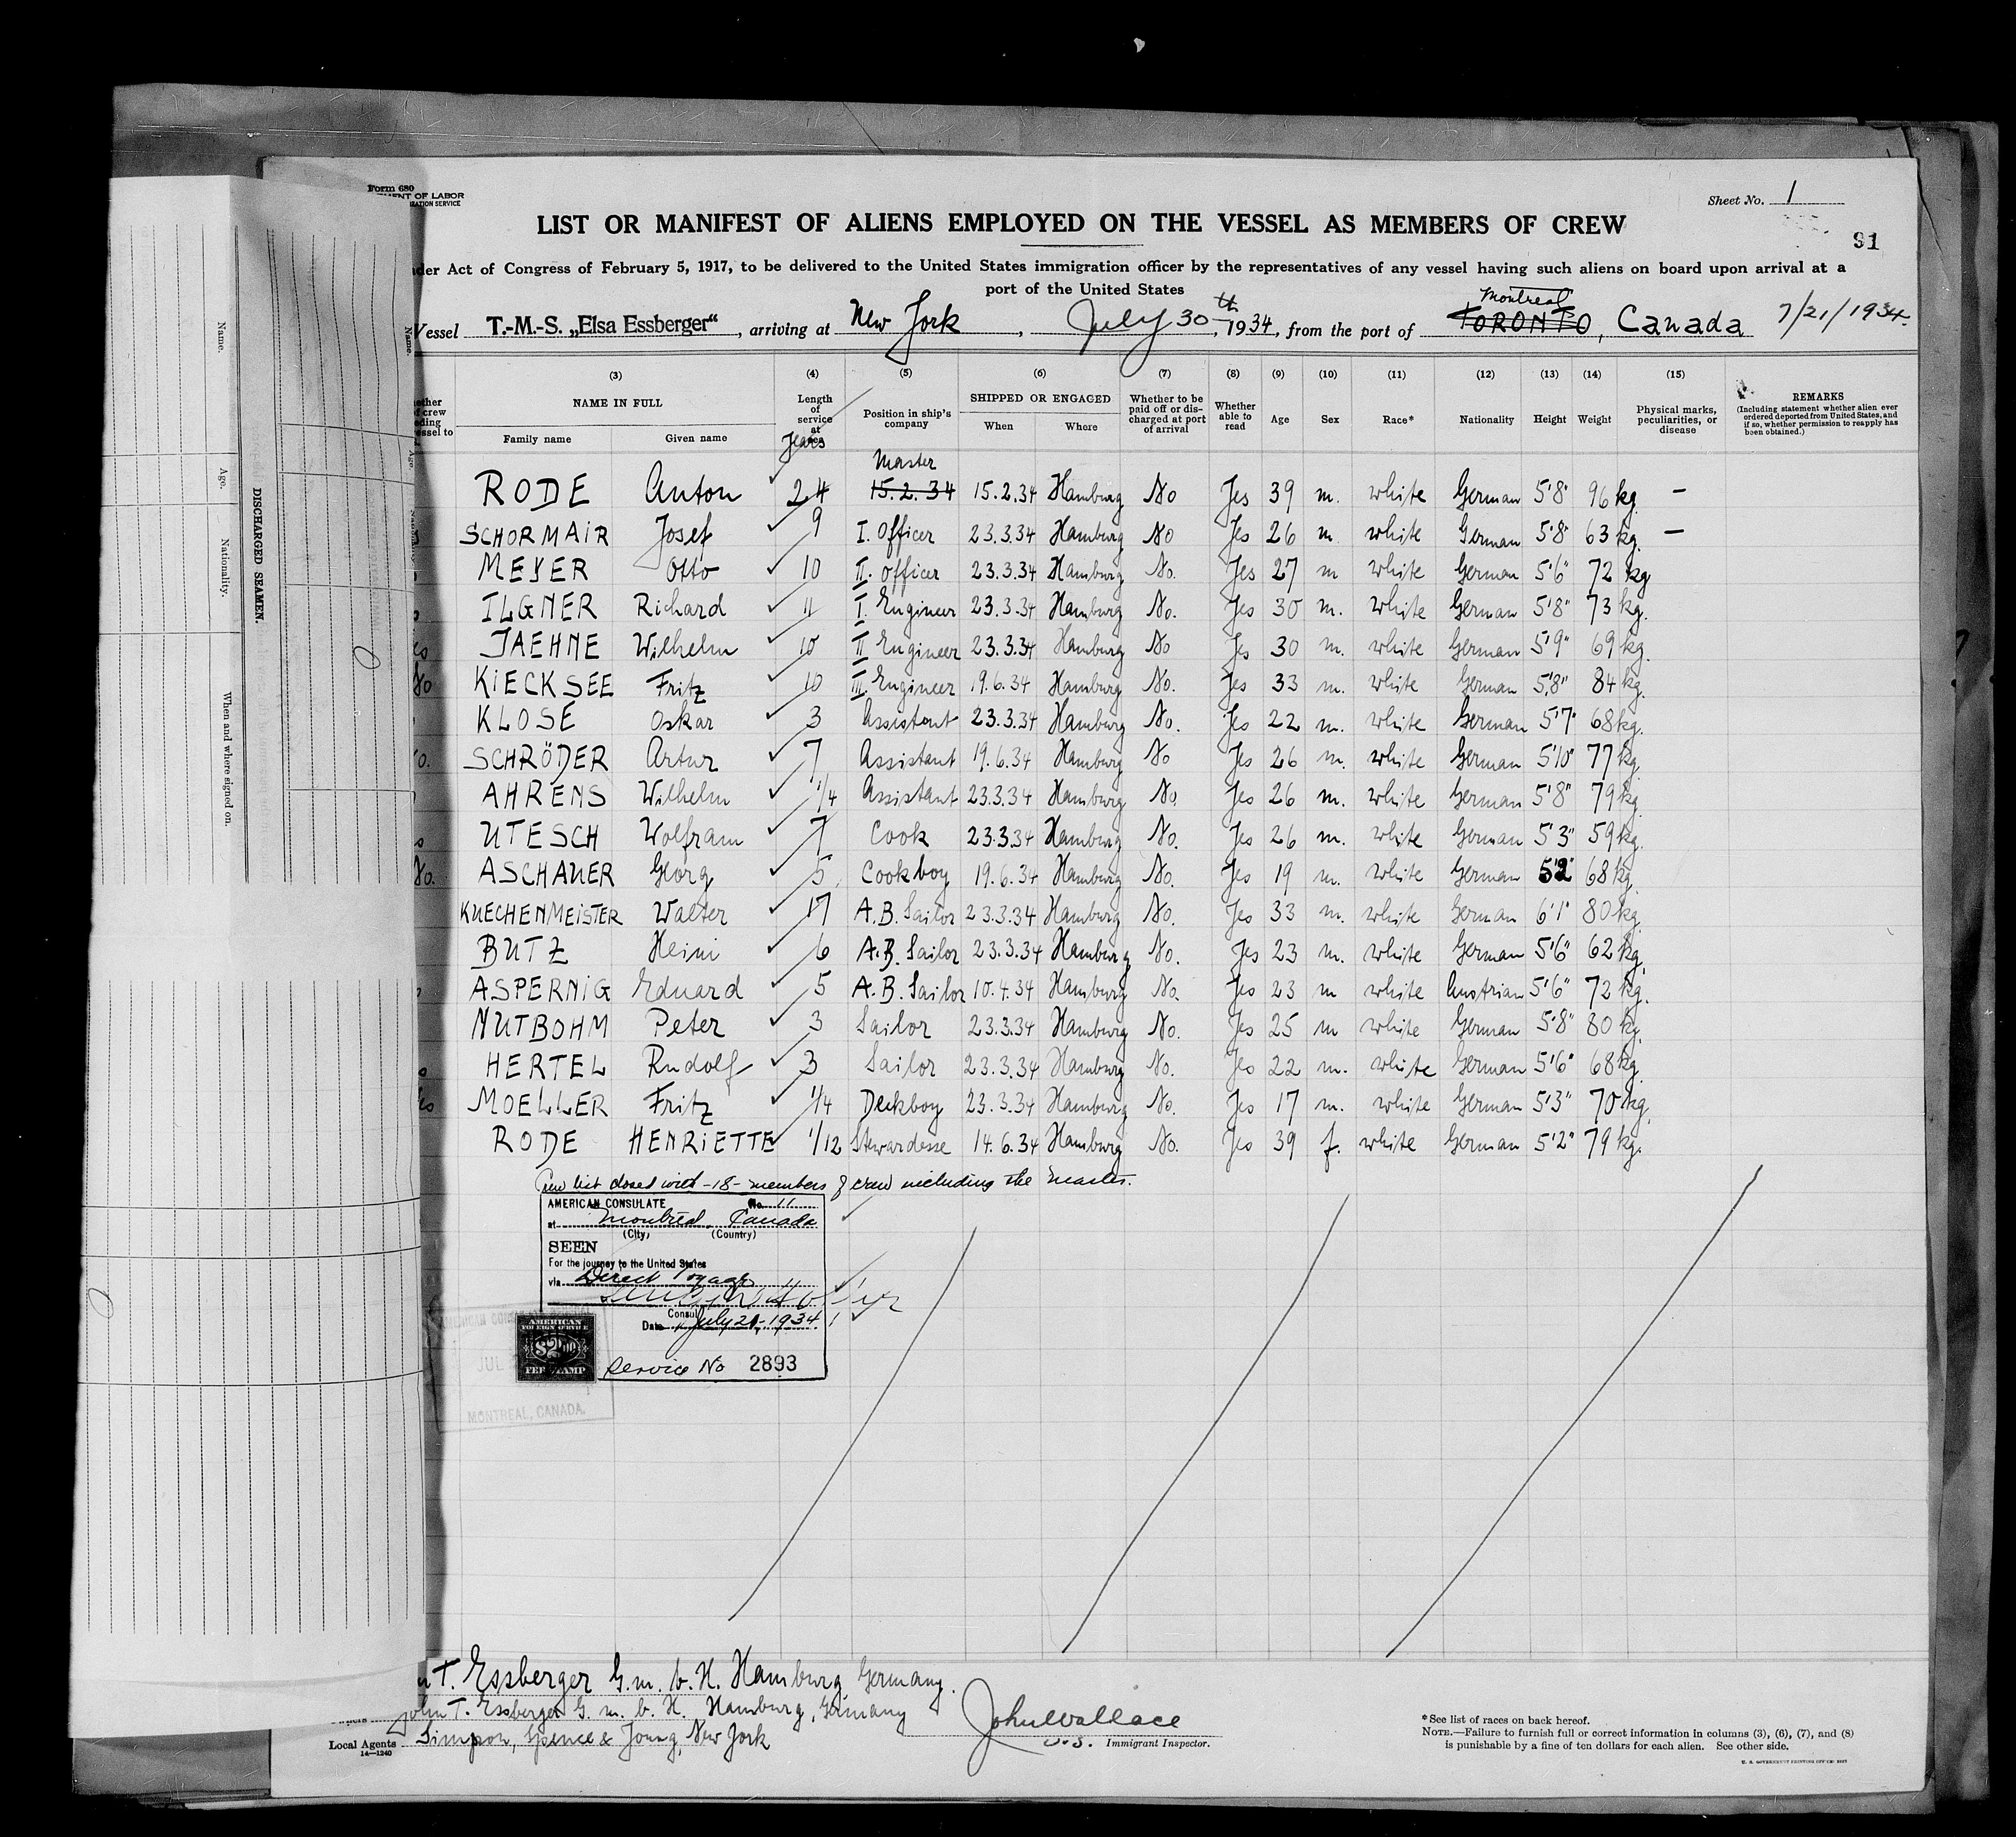 Form 680
MENT OF LABOR
ZATION SERVICE
Sheet No. 1
LIST OR MANIFEST OF ALIENS EMPLOYED ON THE VESSEL AS MEMBERS OF CREW
91
der Act of Congress of February 5, 1917, to be delivered to the United States immigration officer by the representatives of any vessel having such aliens on board upon arrival at a
port of the United States
Vessel T.-M.-S. „Elsa Essberger“, arriving at New York, July 30th, 1934, from the port of TORONTO Montreal, Canada 7/21/1934.
(3) (4) (5) (6) (7) (8) (9) (10) (11) (12) (13) (14) (15)
NAME IN FULL
Family name Given name
Length of service at Years
Position in ship's company
SHIPPED OR ENGAGED
When Where
Whether to be paid off or discharged at port of arrival
Whether able to read
Age Sex Race* Nationality Height Weight
Physical marks, peculiarities, or disease
REMARKS
(Including statement whether alien ever ordered deported from United States, and if so, whether permission to reapply has been obtained.)
Master
RODE Anton 24 15.2.34 15.2.34 Hamburg No Yes 39 m. white German 5'8" 96 kg. –
SCHORMAIR Josef 9 I. Officer 23.3.34 Hamburg No Yes 26 m. white German 5'8" 63 kg. –
MEYER Otto 10 II. Officer 23.3.34 Hamburg No. Yes 27 m white German 5'6" 72 kg
ILGNER Richard 11 I. Engineer 23.3.34 Hamburg No. Yes 30 m. white German 5'8" 73 kg.
JAEHNE Wilhelm 10 II Engineer 23.3.34 Hamburg No Yes 30 m. white German 5'9" 69 kg.
No KiECKSEE Fritz 10 III. Engineer 19.6.34 Hamburg No. Yes 33 m. white German 5'8" 84 kg.
KLOSE Oskar 3 Assistant 23.3.34 Hamburg No. Yes 22 m. white German 5'7" 68 kg.
SCHRÖDER Artur 7 Assistant 19.6.34 Hamburg No Yes 26 m. white German 5'10" 77 kg.
AHRENS Wilhelm 1/4 Assistant 23.3.34 Hamburg No. Yes 26 m. white German 5'8" 79 kg.
UTESCH Wolfram 7 Cook 23.3.34 Hamburg No. Yes 26 m. white German 5'3" 59 kg.
No. ASCHAUER Georg 5 Cookboy 19.6.34 Hamburg No. Yes 19 m. white German 5'2" 68 kg.
KUECHENMEiSTER Walter 17 A.B. Sailor 23.3.34 Hamburg No. Yes 33 m. white German 6'1" 80 kg.
BUTZ Heini 6 A.B. Sailor 23.3.34 Hamburg No. Yes 23 m. white German 5'6" 62 kg.
ASPERNiG Eduard 5 A.B. Sailor 10.4.34 Hamburg No. Yes 23 m white Austrian 5'6" 72 kg.
NUTBOHM Peter 3 Sailor 23.3.34 Hamburg No. Yes 25 m white German 5'8" 80 kg.
HERTEL Rudolf 3 Sailor 23.3.34 Hamburg No. Yes 22 m. white German 5'6" 68 kg.
MOELLER Fritz 1/4 Deckboy 23.3.34 Hamburg No. Yes 17 m. white German 5'3" 70 kg.
RODE HENRiETTE 1/12 Stewardesse 14.6.34 Hamburg No. Yes 39 f. white German 5'2" 79 kg.
Crew list closed with -18- members of crew including the master.
AMERICAN CONSULATE No. 11
at Montreal, Canada
(City) (Country)
SEEN
For the journey to the United States
via Direct Voyage
Consul
Date July 21-1934
Service No 2893
AMERICAN
FOREIGN SERVICE
$2.00
FEE STAMP
JUL
MONTREAL, CANADA.
T. Essberger G.m.b.H. Hamburg Germany.
John T. Essberger G.m.b.H. Hamburg, Germany
Local Agents Simpson, Spence & Young, New York
14—1240
John Wallace
U.S. Immigrant Inspector.
*See list of races on back hereof.
NOTE.—Failure to furnish full or correct information in columns (3), (6), (7), and (8)
is punishable by a fine of ten dollars for each alien. See other side.
DISCHARGED SEAMEN.
Name.
Age.
Nationality.
When and where signed on.